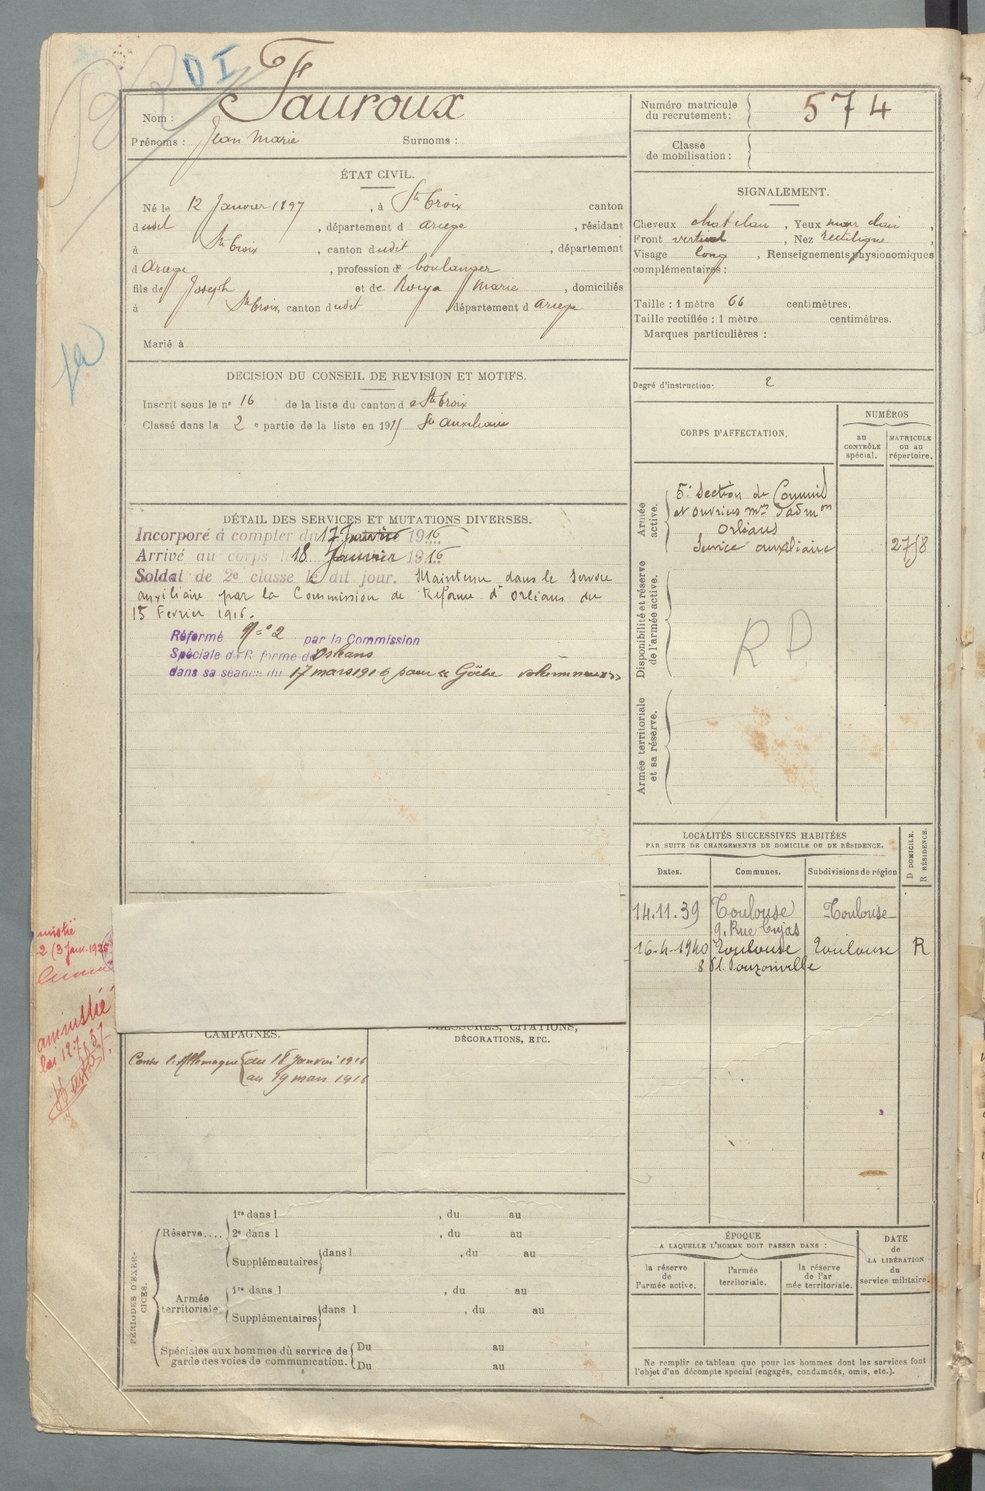 DI
Nom : Fauroux
Prénoms : Jean Marie Surnoms :
ÉTAT CIVIL.
Né le 12 Janvier 1897, à Ste Croix canton
dudit, département d Ariège, résidant
à Ste Croix, canton dudit, département
d Ariège, profession de boulanger
fils de Joseph et de Marie, domiciliés
à Ste Croix, canton dudit, département d Ariège
Marié à
DECISION DU CONSEIL DE REVISION ET MOTIFS.
Inscrit sous le n° 16 de la liste du canton de Ste Croix
Classé dans la 2 e partie de la liste en 191 Sce auxiliaire
DÉTAIL DES SERVICES ET MUTATIONS DIVERSES.
Incorporé à compter du 17 Janvier 1916
Arrivé au corps le 18 Janvier 1916
Soldat de 2e classe le dit jour. Maintenu dans le Service
auxiliaire par la Commission de Réforme d'Orléans du
15 Fevrier 1916.
Réformé N° 2 par la Commission
Spéciale de Réforme de Orléans
dans sa séance du 17 mars 1916 pour
CAMPAGNES.
Contre l'Allemagne du 18 Janvier 1916
au 19 mars 1916
BLESSURES, CITATIONS,
DÉCORATIONS, ETC.
PÉRIODES D'EXERCICES.
Réserve....
1re dans l , du au
2e dans l , du au
Supplémentaires dans l , du au
Armée
territoriale
1re dans l , du au
Supplémentaires dans l , du au
Spéciales aux hommes du service de
garde des voies de communication.
Du au
Du au
Numéro matricule
du recrutement : 574
Classe
de mobilisation :
SIGNALEMENT.
Cheveux chatclair, Yeux mar clair,
Front vertical, Nez rectiligne,
Visage long, Renseignements physionomiques
complémentaires :
Taille : 1 mètre 66 centimètres.
Taille rectifiée : 1 mètre centimètres.
Marques particulières :
Degré d'instruction : 2
CORPS D'AFFECTATION.
NUMÉROS
AU
CONTRÔLE
spécial.
MATRICULE
OU AU
répertoire.
Armée
active.
5e Section de Commis
et ouvriers mres d'admon
Orléans
Service auxiliaire 2758
Disponibilité et réserve
de l'armée active.
RD
Armée territoriale
et sa réserve.
LOCALITÉS SUCCESSIVES HABITÉES
PAR SUITE DE CHANGEMENTS DE DOMICILE OU DE RÉSIDENCE.
Dates. Communes. Subdivisions de région
D DOMICILE.
R RÉSIDENCE.
14.11.39 Toulouse Toulouse
9, Rue Cujas
16-4-1940 Toulouse Toulouse R
8 Pl.
ÉPOQUE
A LAQUELLE L'HOMME DOIT PASSER DANS :
la réserve
de
l'armée active.
l'armée
territoriale.
la réserve
de l'ar
mée territoriale.
DATE
de
LA LIBÉRATION
du
service militaire.
Ne remplir ce tableau que pour les hommes dont les services font
l'objet d'un décompte spécial (engagés, condamnés, omis, etc.).
amnistié